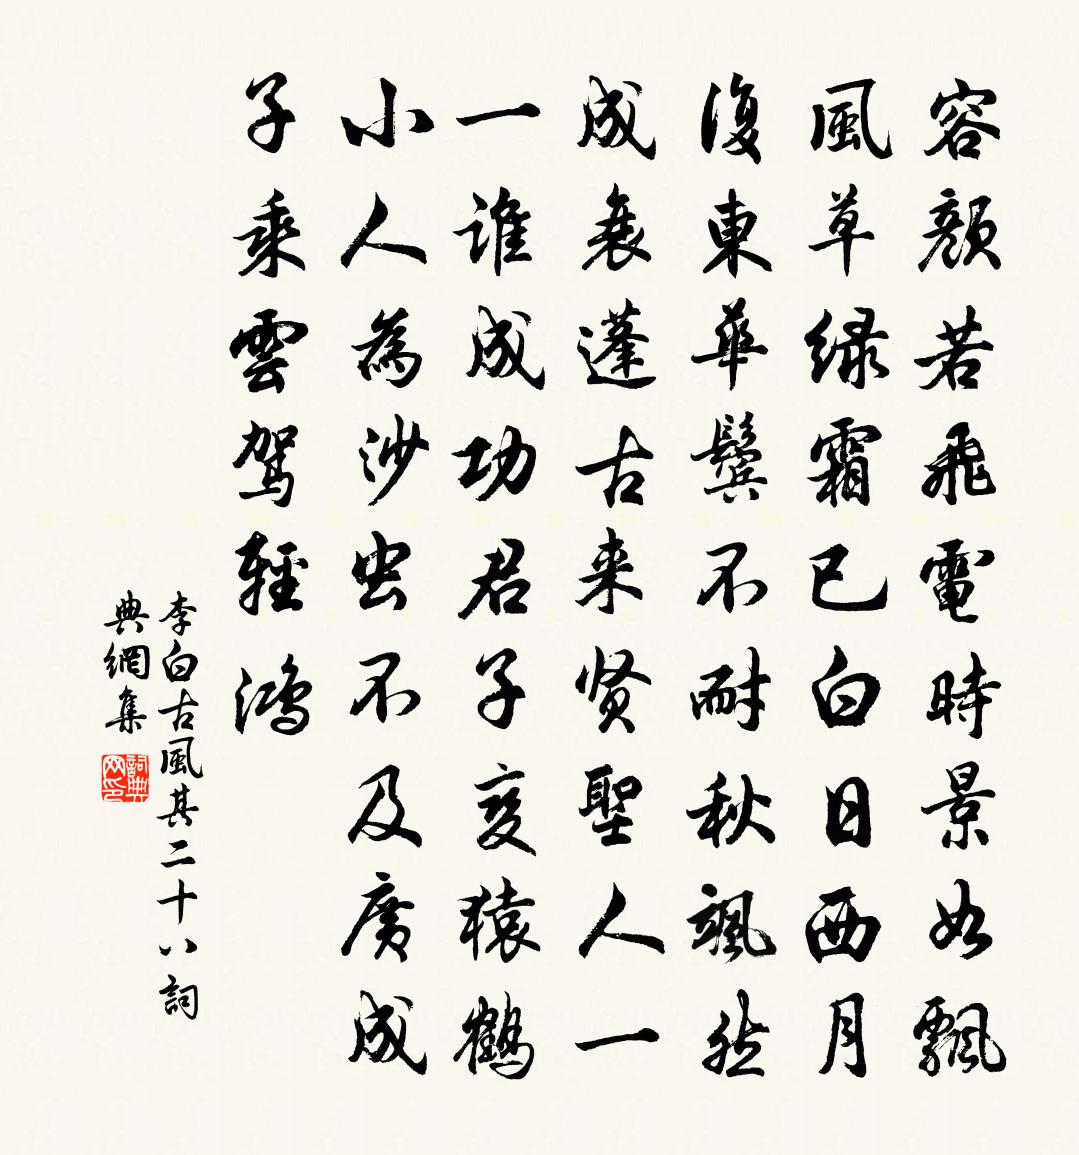 容顏若飛電時景如飄
風草綠霜已白日西月
復東華鬢不耐秋颯然
成衰蓬古来賢聖人一
一誰成功君子变猿鶴
小人為沙虫不及廣成
子乘雲駕輕鴻
李白古風其二十八詞
典網集
詞典网印